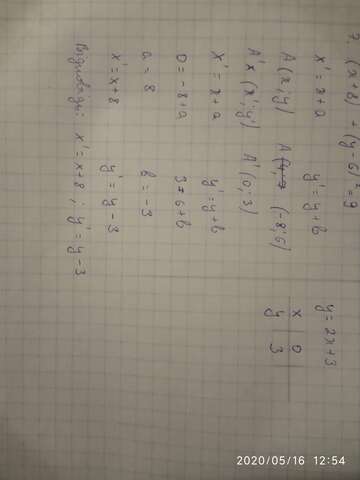 7. (x+8)² + (y-6)² = 9
x' = x + a    y' = y + b
A (x; y)    A (-8; 6)
A'x (x'; y')    A' (0; 3)
x' = x + a    y' = y + b
0 = -8 + a    3 = 6 + b
a = 8    b = -3
x' = x + 8    y' = y - 3
Відповідь: x' = x + 8 ; y' = y - 3
y = 2x + 3
x 0
y 3
2020/05/16 12:54